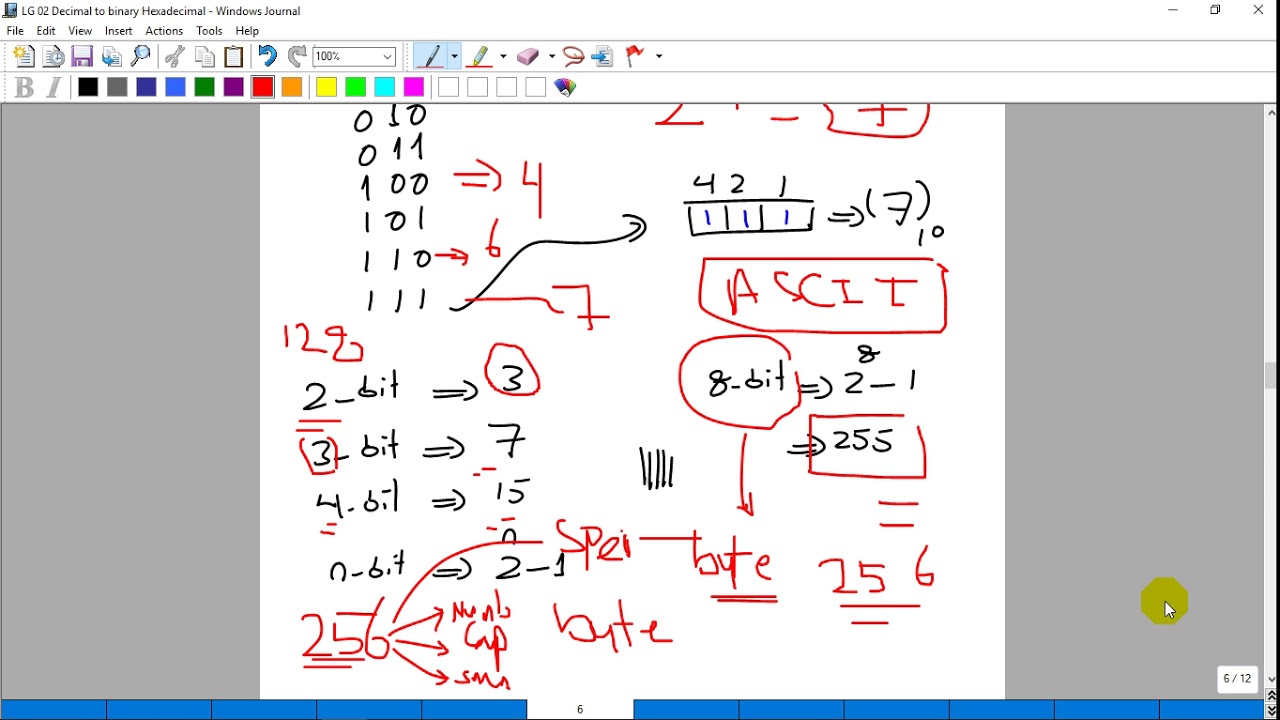 LG 02 Decimal to binary Hexadecimal - Windows Journal
File Edit View Insert Actions Tools Help
100%
B I
0 10
0 11
1 00 => 4
1 0 1
1 1 0 → 6
1 1 1 7
4 2 1
1 1 1 => (7)10
ASCII
128
2-bit => 3
3-bit => 7
4-bit => 15
n-bit => 2^n - 1
8-bit => 2^8 - 1
=> 255
byte
256
256
Cap
byte
6 / 12
6